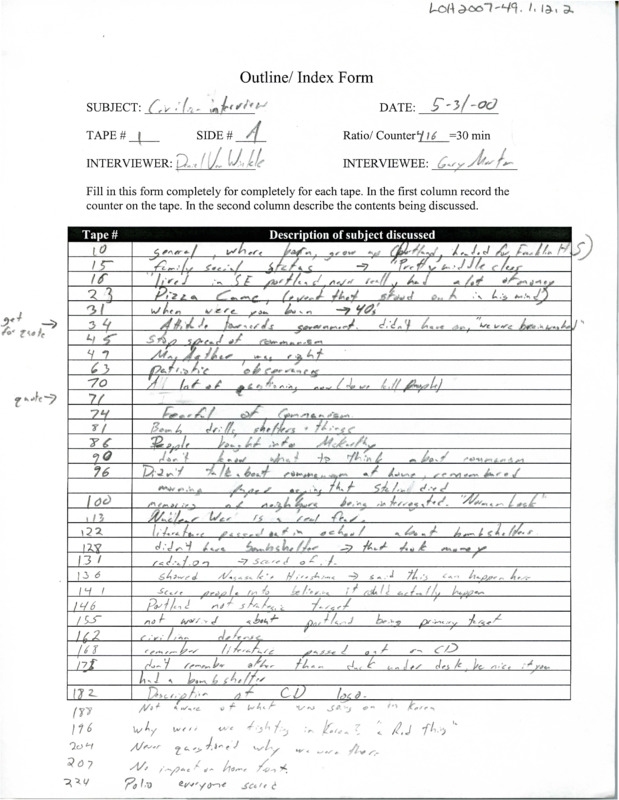 LOH2007-49.1.12.2
Outline/ Index Form
SUBJECT: Civilian interview DATE: 5-31-00
TAPE # 1 SIDE # A Ratio/ Counter 416 =30 min
INTERVIEWER: Van Winkle INTERVIEWEE: Gary
Fill in this form completely for completely for each tape. In the first column record the
counter on the tape. In the second column describe the contents being discussed.
Tape # Description of subject discussed
10 general, where born, grew up (Portland, headed for Franklin HS)
15 family social status → "Pretty middle class
16 lived in SE portland, never really had a lot of money
23 Pizza Came, (event that stood out in his mind)
31 when were you born → 40's
get for quote → 34 Attitude towards government. didn't have on, "we were brainwashed"
45 Stop spread of communism
49 was right
63 Patriotic observances
70 A lot of questioning now (to we kill people)
quote → 71
74 Fearful of Communism.
81 Bomb drills, shelters + things
86 People bought into McKarthy
90 don't know what to think about communism
96 Didn't talk about communism at home, remembered
morning paper saying that Stalin died
100 memories of neighbors being interrogated.
113 Nuclear War is a real fear.
122 literature passed out in school about bombshelters.
128 didn't have bombshelter → that took money
131 radiation → scared of it.
136 showed Hiroshima → said this can happen here
141 scare people into believing it could actually happen
146 Portland not strategic target
155 not worried about portland being primary target
162 civilian defense
168 remember literature passed out on CD
178 don't remember other than duck under desk, be nice if you
had a bomb shelter
182 Description of CD logo.
188 Not aware of what was going on in Korea
196 why were we fighting in Korea? "a Red thing"
204 Never questioned why we were there
207 No impact on home front.
224 Polio everyone scared